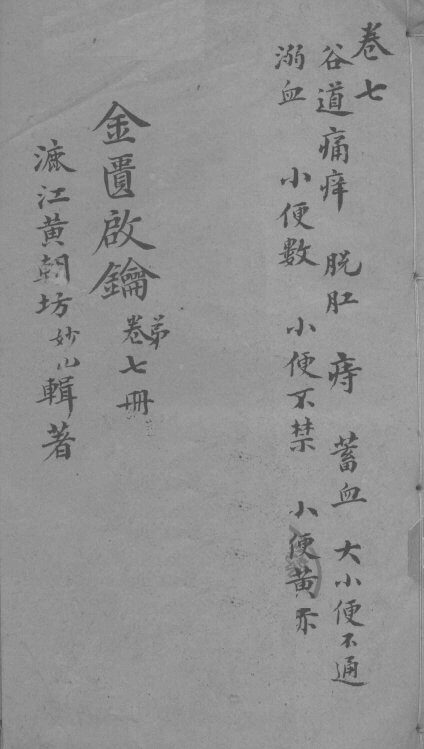 卷七
谷道痛痒 脱肛 痔 蓄血 大小便不通
溺血 小便數 小便不禁 小便黄赤
金匱啟鑰 第卷七冊
漉江黄朝坊妙山輯著